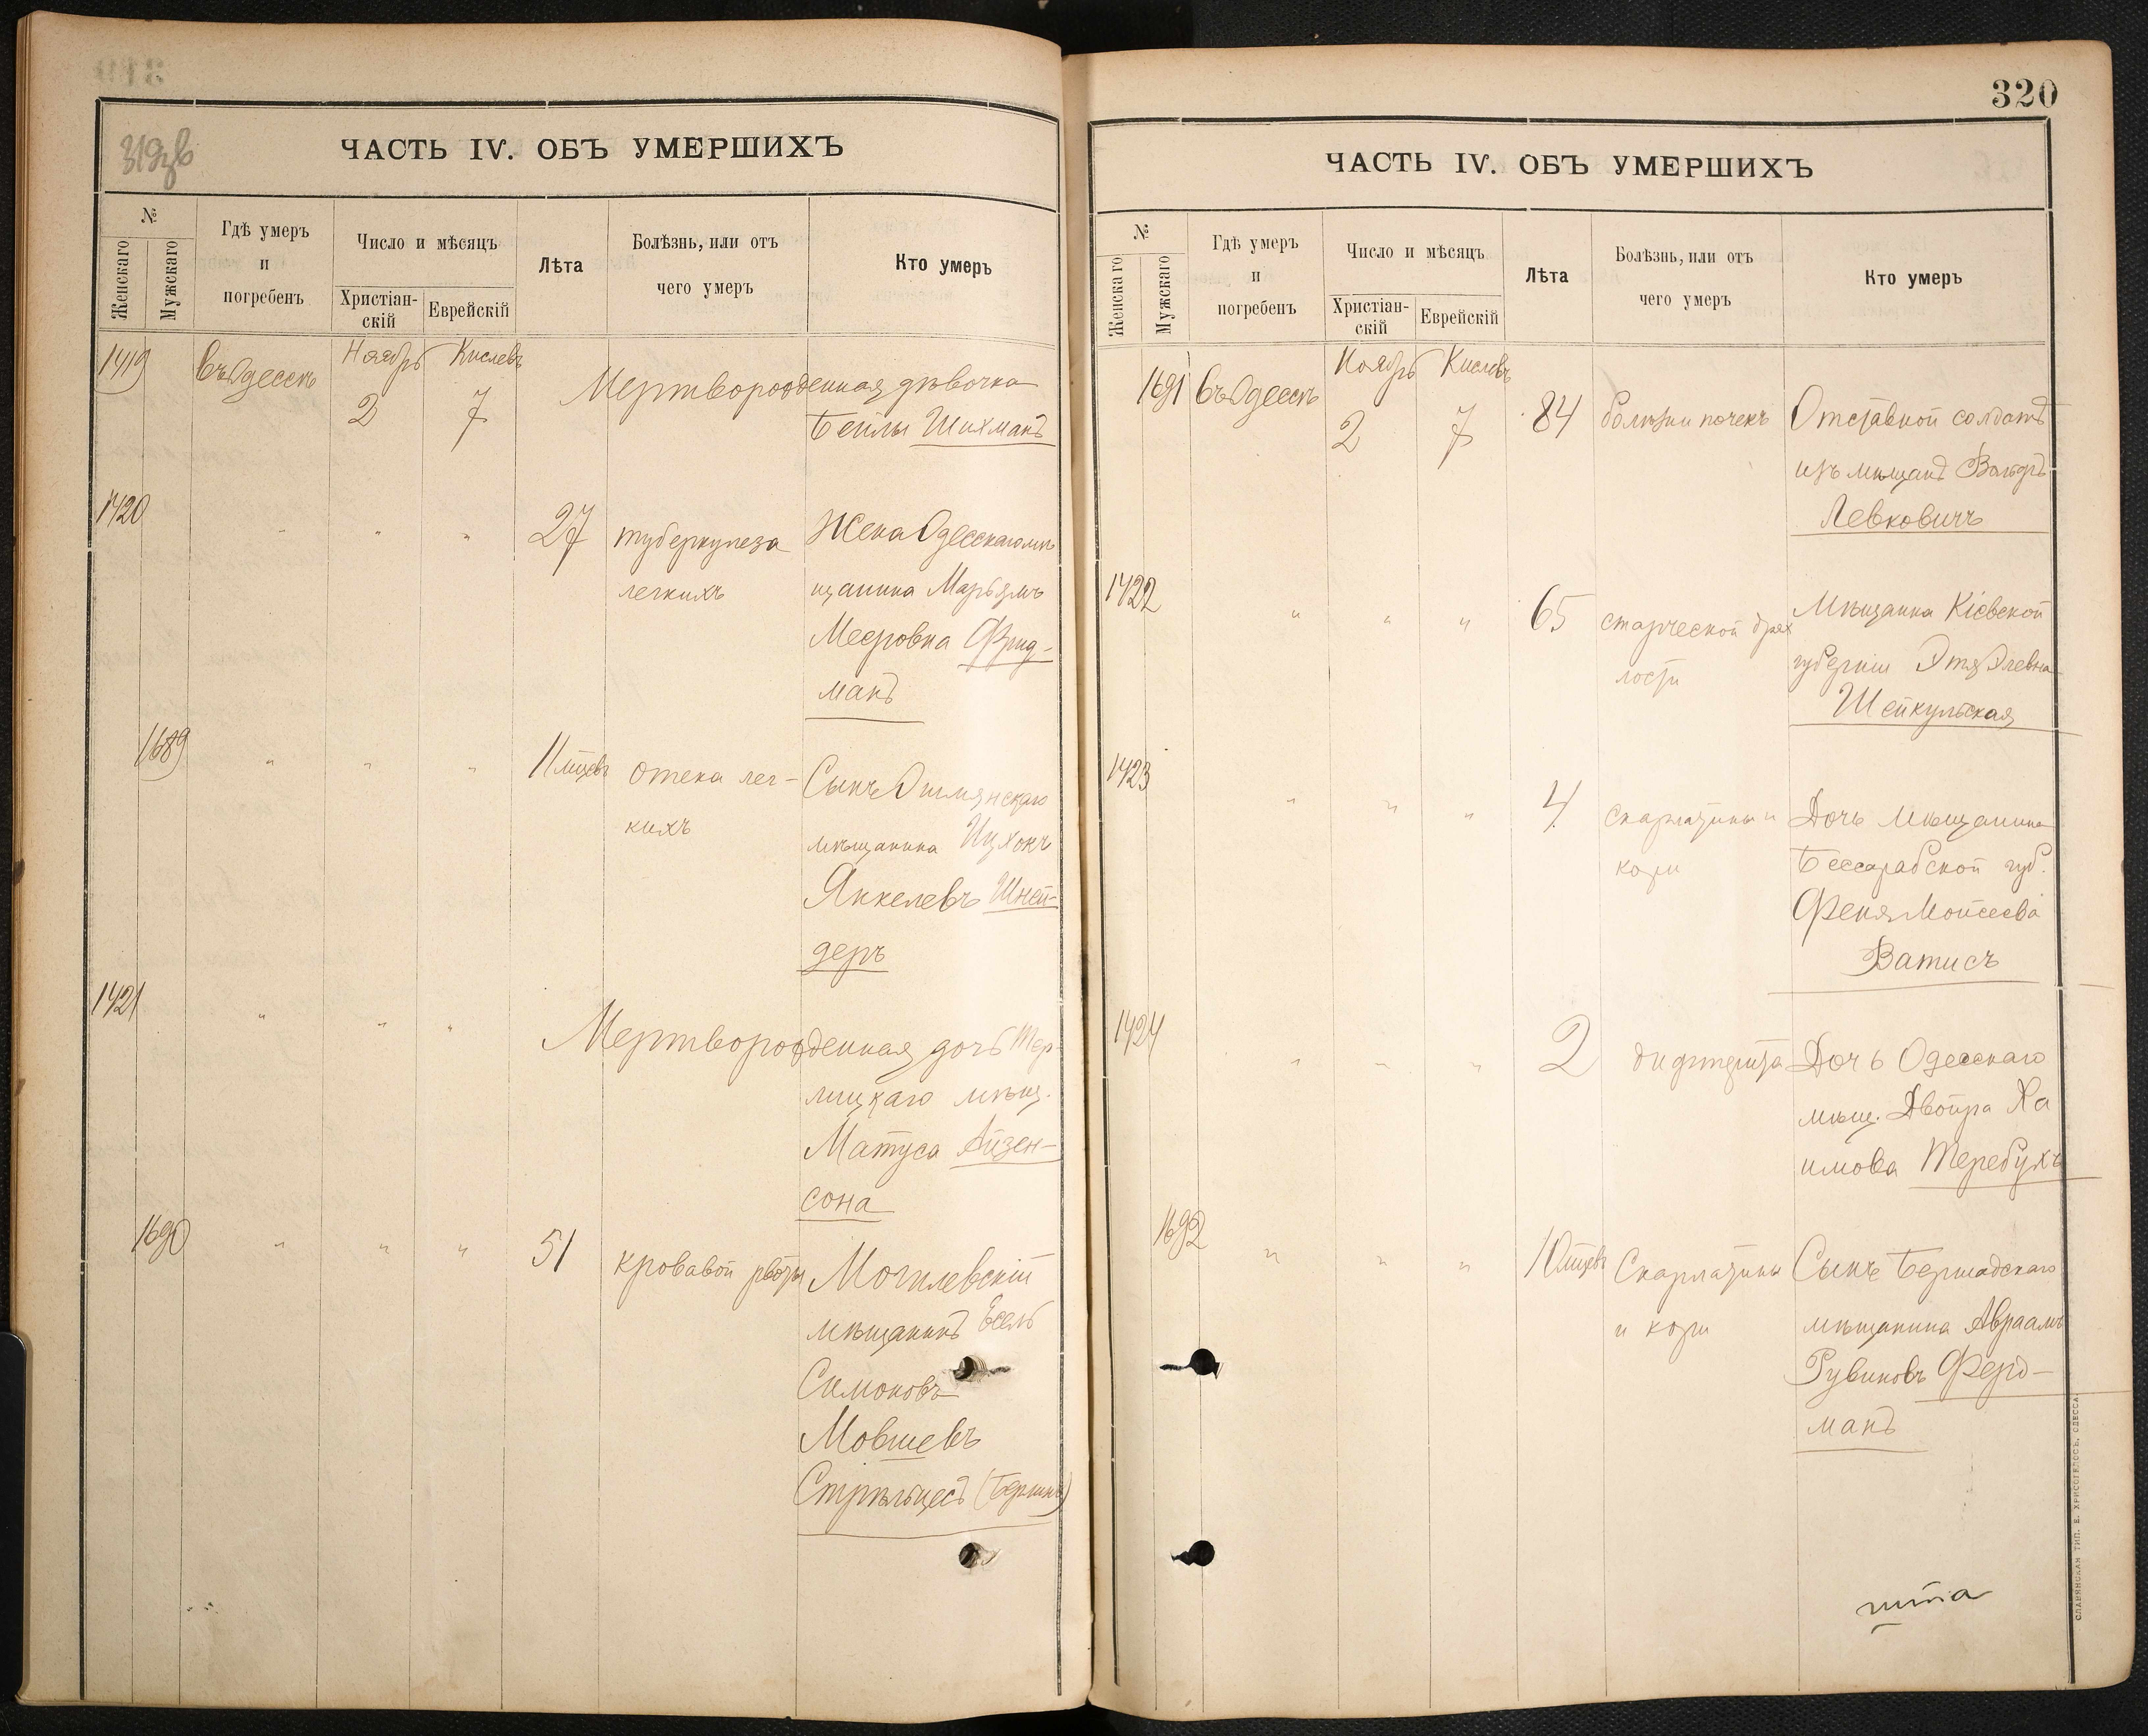 319зв
ЧАСТЬ IV. ОБЪ УМЕРШИХЪ
№
Женскаго
Мужскаго
Гдѣ умеръ
и
погребенъ
Число и мѣсяцъ
Христіан-
скій
Еврейскій
Лѣта
Болѣзнь, или отъ
чего умеръ
Кто умеръ
1419 въ Одессѣ Ноябрь Кислевъ
2 7
Мертворожденная дѣвочка
Бейлы Шихманъ
1420 " " " 27 туберкулеза Жена Одесскаго мѣ
легкихъ щанина Марьямъ
Мееровна Фрид-
манъ
1689 " " " 11 мцевъ отека лег- Сынъ
кихъ мѣщанина Ицхокъ
Янкелевъ Шней-
деръ
1421 " " "
Мертворожденная дочь Тер
лицкаго мѣщ.
Матуса Айзен-
сона
1690 " " " 51 кровавой рвоты Могилевскій
мѣщанинъ Есель
Симоновъ
Мовшевъ
Стрѣльцесъ
320
ЧАСТЬ IV. ОБЪ УМЕРШИХЪ
№
Женскаго
Мужскаго
Гдѣ умеръ
и
погребенъ
Число и мѣсяцъ
Христіан-
скій
Еврейскій
Лѣта
Болѣзнь, или отъ
чего умеръ
Кто умеръ
1691 въ Одессѣ Ноябрь Кислевъ
2 7 84 болѣзни почекъ Отставной солдатъ
изъ мѣщанъ Вольфъ
Левковичъ
1422 " " " 65 старческой дрях Мѣщанка Кіевской
лости губерніи Этя Элевна
Шейкульская
1423 " " " 4 скарлатины и Дочь мѣщанина
кори Бессарабской губ.
Феня Мойсеева
Ватисъ
1424 " " " 2 дифтерита Дочь Одесскаго
мѣщ. Двойра Ха
имова Теребухъ
1692 " " " 10 мцевъ Скарлатины Сынъ Бершадскаго
и кори мѣщанина Авраамъ
Рувиновъ Ферд-
манъ
СЛАВЯНСКАЯ ТИП. Е. ХРИСОГЕЛОСЪ, ОДЕССА.